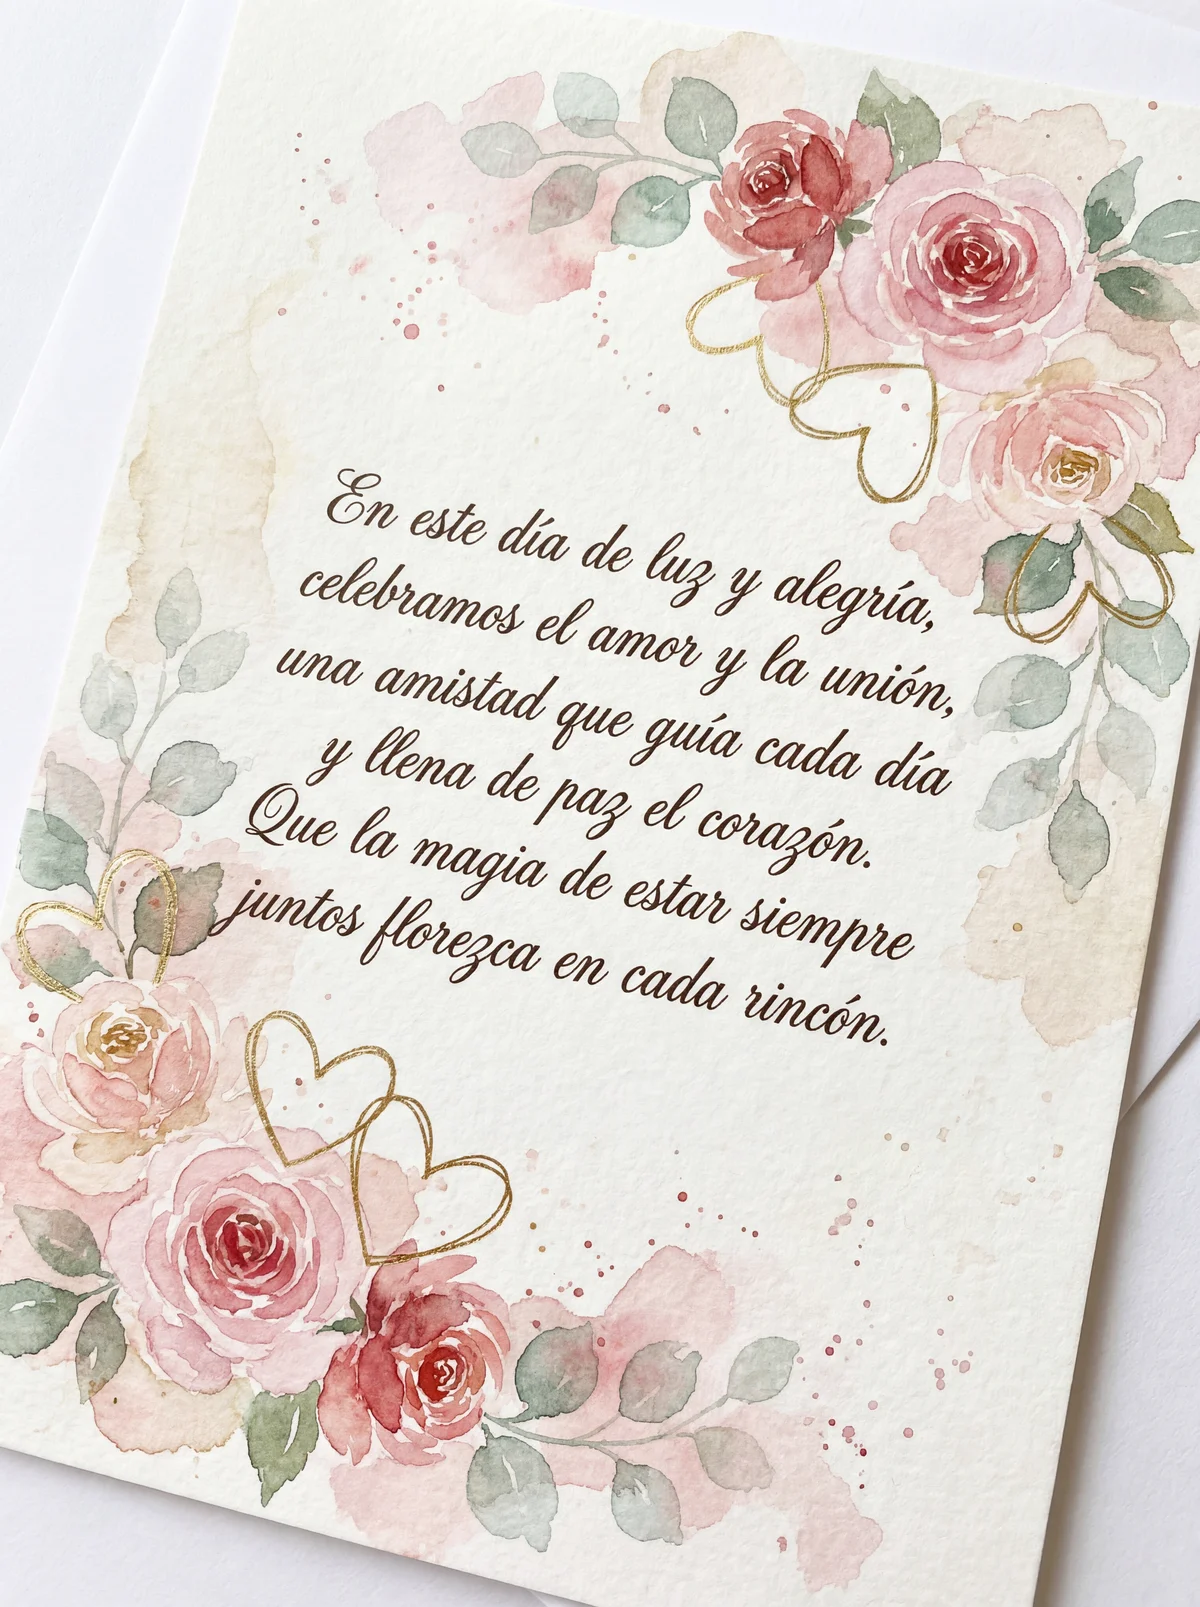 En este día de luz y alegría,
celebramos el amor y la unión,
una amistad que guía cada día
y llena de paz el corazón.
Que la magia de estar siempre
juntos florezca en cada rincón.